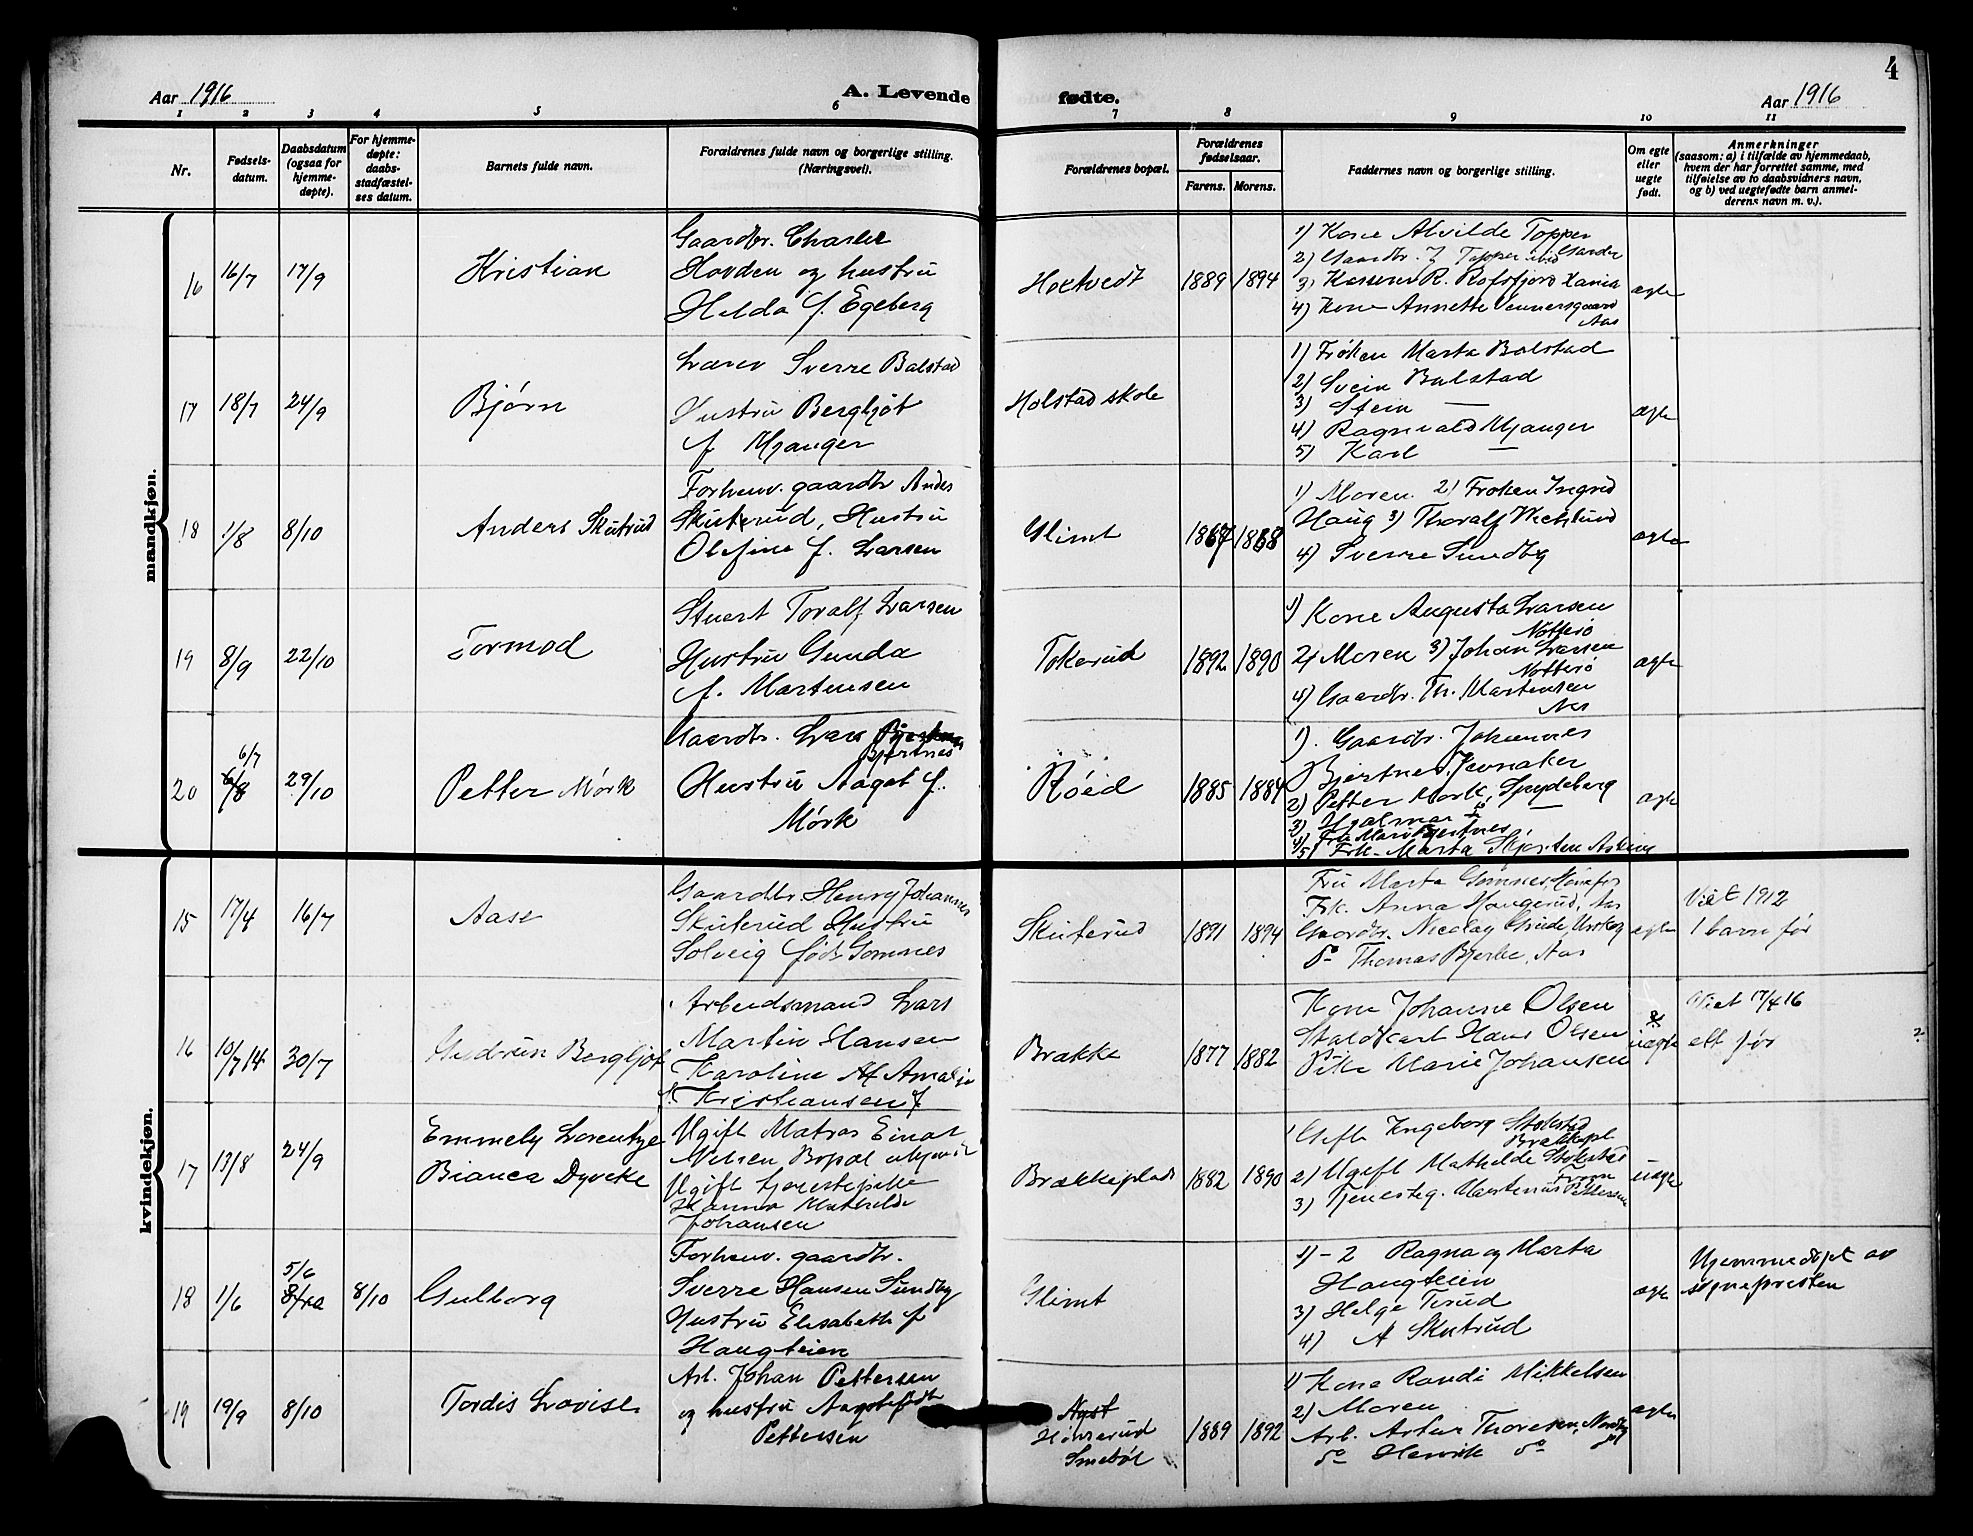 4
Aar 1916
A. Levende
fødte.
Aar 1916
1 2 3 4 5 6 7 8 9 10 11
Nr.
Fødsels-
datum.
Daabsdatum
(ogsaa for
hjemme-
døpte).
For hjemme-
døpte:
daabs-
stadfæstel-
ses datum.
Barnets fulde navn.
Forældrenes fulde navn og borgerlige stilling.
(Næringsvei).
Forældrenes bopæl.
Forældrenes
fødselsaar.
Farens. Morens.
Faddernes navn og borgerlige stilling.
Om egte
eller
uegte
født.
Anmerkninger
(saasom: a) i tilfælde av hjemmedaab,
hvem der har forrettet samme, med
tilføielse av to daabsvidners navn,
og b) ved uegtefødte barn anmel-
derens navn m. v.).
mandkjøn.
16 16/7 17/9
Kristian
Gaardbr. Charles
Hovden og hustru
Helda f. Egeberg
1889 1894
1) Kone Alvilde Topper
2) Gaardbr. J Topper
3) R. Rofsfjord Xania
4) Kone Annette Vennersgaard
Aas
ægte
17 18/7 24/9
Bjørn
Lærer Sverre Balstad
Hustru Bergljót
f Mjanger
Holstad skole
1) Frøken Marta Balstad
2) Svein Balstad
3) Stein —
4) Ragnvald Mjanger
5) Karl —
ægte
18 1/8 8/10
Anders Skuterud
Forhenv. gaardbr Anders
Skuterud, Hustru
Olefine f. Larsen
Glimt
1867 1868
1) Moren. 2) Frøken Ingrid
Haug 3) Thoralf
4) Sverre Sundby
ægte
19 8/9 22/10
Tormod
Stuert Toralf Larsen
Hustru Gunda
f. Martensen
Tokerud
1892 1890
1) Kone Augusta Larsen
Nøtterö
2) Moren 3) Johan Larsen
Nøtterö
4) Gaardbr. Th. Martensen
Aas
ægte
20 6/7 6/8 29/10
Petter Mørk
Gaardbr. Lars
Bjertnes
Hustru Aagot f.
Mørk
Røed
1885 1884
1). Gaardbr. Johannes
Bjertnes, Jevnaker
2) Petter Mørk, Spydeberg
3) Hjalmar —
4) Fru Mari Bjertnes
5) Frk. Marta Skjorten Askim
ægte
kvindekjøn.
15 17/4 16/7
Aase
Gaardbr. Henry Johannes
Skuterud Hustru
Solveig født Gomnes
Skuterud
1891 1894
Fru Marta Gomnes, Hønefos
Frk. Anna Haugerud, Aas
Gaardbr. Nicolay Grude, Urskog
do Thomas Bjerke, Aas
egte
Viet 1912
1 barn før
16 10/7 14 30/7
Gudrun Bergljot
Arbeidsmand Lars
Martin Hansen
Karoline Amalie
f. Kristiansen
Brække
1877 1882
Kone Johanne Olsen
Staldkarl Hans Olsen
Pike Marie Johansen
uægte
Viet 17/4 16
ett før
2
17 13/8 24/9
Emmely Lorentze
Bianca Dyveke
Ugift Matros Einar
Nilsen Bopæl ukjendt
Ugift tjenestepike
Hanna Mathilde
Johansen
Brækkeplads
1882 1890
1) Gift Ingeborg Stokstad
Brækkepl
2) Ugift Mathilde Stokstad
3) Tjenesteg. Martinius Pettersen
uægte
18 1/6 5/6 8/10 8/10
Gulborg
Forhenv. gaardbr.
Sverre Hansen Sundby
Hustru Elisabeth f
Haugteien
Glimt
1) - 2 Ragna og Marta
Haugteien
3) Helge Terud
4) A Skuterud
ægte
Hjemmedøpt av
sognepresten
19 19/9 8/10
Tordis Lovise
Arb. Johan Pettersen
og hustru Aagot født
Pettersen
Smebøl
1889 1892
1) Kone Randi Mikkelsen
2) Moren
Arb. Artur Thoresen, Nordby
do Henrik do
ægte